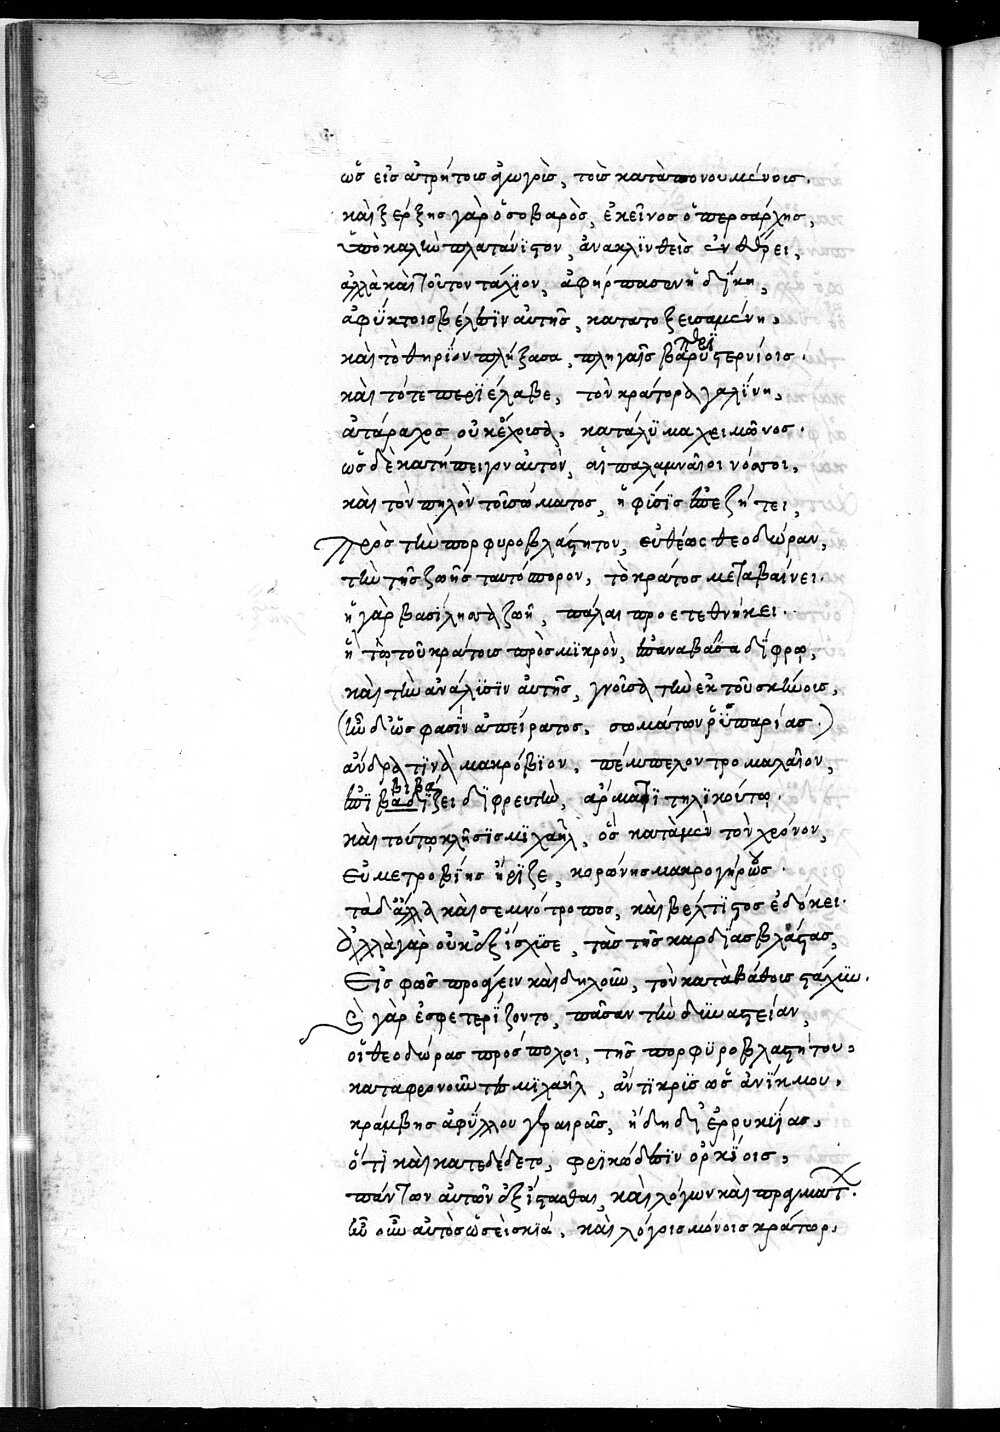 ὡς εἰς ἀτρήτοις ἀγωγοῖς, τοῖς καταπονουμένοις.
καὶ ξέρξης γὰρ ὁ σοβαρὸς, ἐκεῖνος ὁ περσάρχης,
ὑπὸ καλὴν πλατάνιστον, ἀνακλινθεὶς ἐν θέρει,
ἀλλὰ καὶ τοῦτον τάχϊον, ἀφήρπασεν ἡ δίκη,
ἀφύκτοις βέλεσϊν αὐτῆς, κατατοξεισαμένη,
καὶ τὸ θηρίον πλήξασα, πληγαῖς βαρυστερνίοις.
καὶ τότε περϊέλαβε, τὸν κράτορα γαλήνη,
ἀτάραχος οὐκ ἔχουσα, κατάλϋμα χειμῶνος.
ὡς δὲ κατήπειγον αὐτὸν, αἱ παλαμναῖοι νόσοι,
καὶ τὸν πηλὸν τοῦ σώματος, ἡ φύσϊς ἐπεζήτει,
πρὸς τὴν πορφυροβλάστητον, εὐθέως θεοδώραν,
τὴν τῆς ζωῆς ταυτόπορον, τὸ κράτος μεταβαίνει.
ἡ γὰρ βασίλησσα ζωὴ, πάλαι προετεθνήκει.
ἣ τῷ τοῦ κράτους πρὸς μϊκρὸν, ἐπαναβᾶσα δίφρῳ,
καὶ τὴν ἀνάλϋσϊν αὐτῆς, γνοῦσα τὴν ἐκ τοῦ σκήνους,
(ἦν δ' ὥς φασϊν ἀπείρατος, σωμάτων ῥυπαρίας.)
ἄνδρα τϊνὰ μακρόβϊον, πέμπελον τρομαλαῖον,
ἐπϊβαδίζει δϊφρευτὴν, ἅρματϊ τηλϊκούτῳ.
καὶ τούτῳ κλῆσϊς μϊχαὴλ, ὃς κατὰ μὲν τὸν χρόνον,
εὐμετροβίης ἤρϊζε, κορώνης μακρογήρως.
τὰ δ' ἄλλα καὶ σεμνότροπος, καὶ βέλτϊστος ἐδόκει.
ἀλλὰ γὰρ οὐκ ἐξίσχϋσε, τὰς τῆς καρδίας βλάστας,
εἰς φῶς προάγειν καὶ δηλοῦν, τὸν κατὰ βάθους στάχυν.
οἱ γὰρ ἐσφετερίζοντο, πᾶσαν τὴν δυναστείαν,
οἱ θεοδώρας πρόσπολοι, τῆς πορφϋροβλαστήτου,
καταφρονοῦντες μϊχαὴλ, ἄντϊκρϋς ὡς ἀνίκμου,
κράμβης ἀφύλλου γεραιρᾶς, ἤδη δϊερρυκυίας,
ὅτϊ καὶ κατεδέδετο, φρϊκώδεσϊν ὁρκίοις,
πάντων αὐτῶν ἐξίστασθαι, καὶ λόγων καὶ πραγμάτ.
ἦν οὖν αὐτὸς ὡσεὶ σκϊὰ, καὶ λόγοις μόνοις κράτωρ.